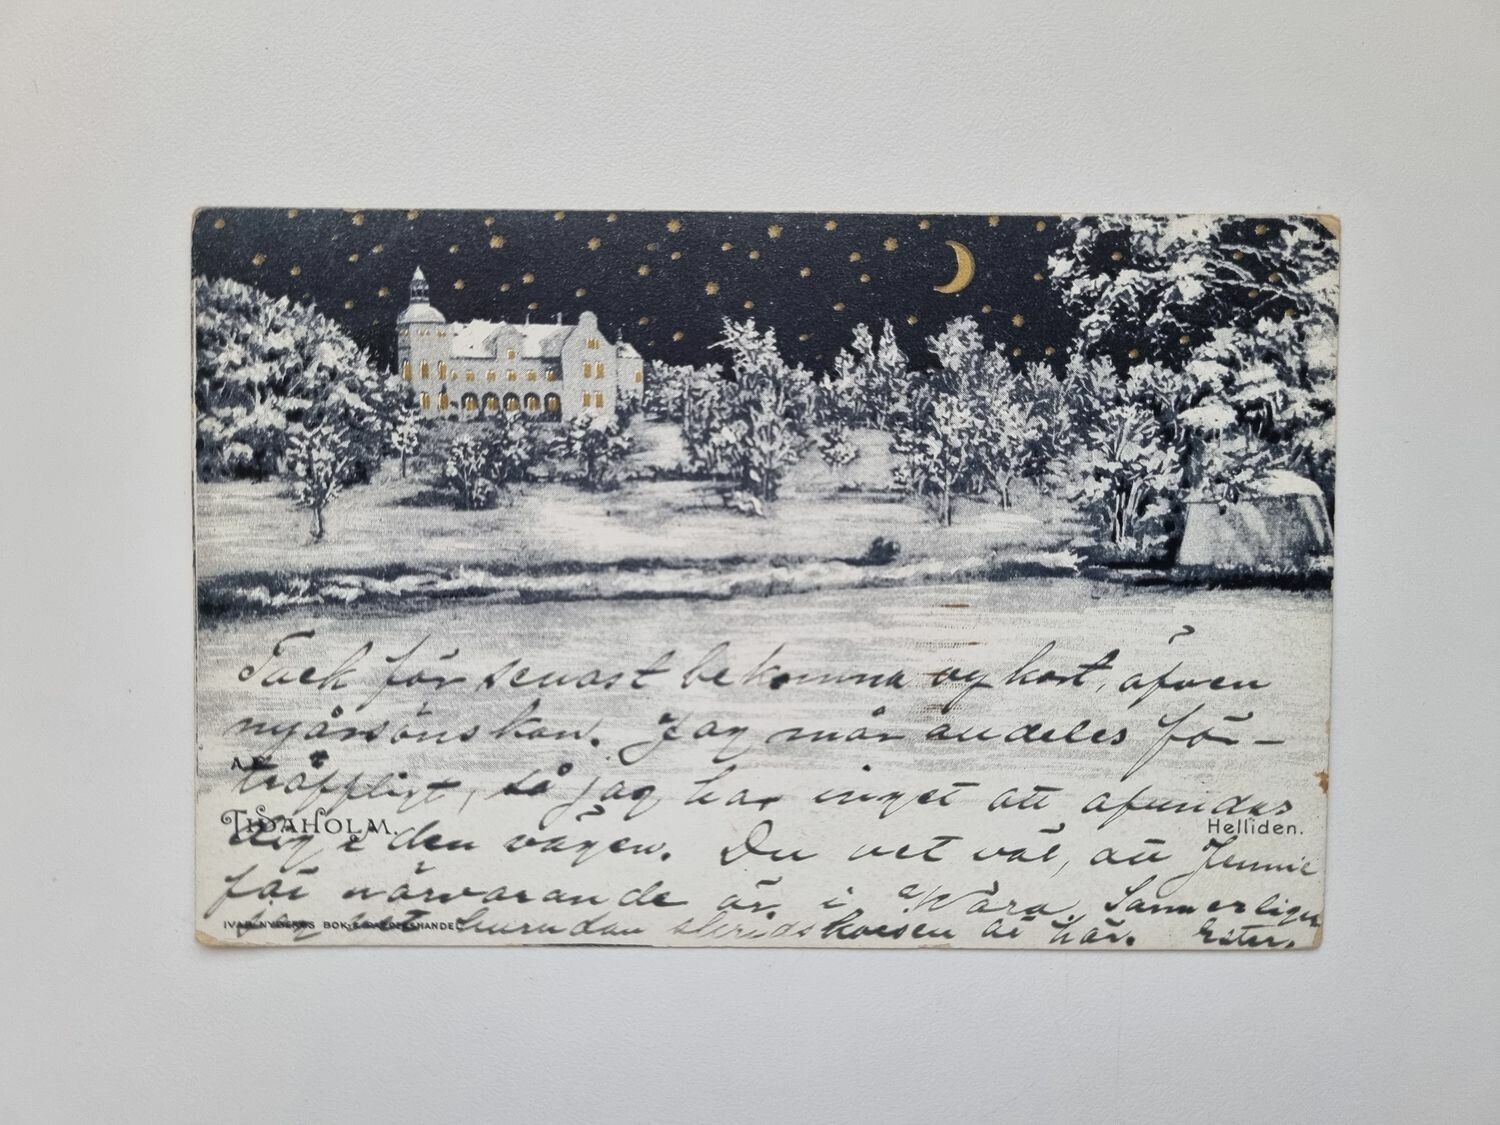 Tack för senast bekomna vykort, äfven
nyårsönskan. Jag mår alldeles för-
träffligt, så jag har inget att afundas
dig i den vägen. Du vet väl, att Jennie
för närvarande är i Wara. Sannerligen
TIDAHOLM.
Helliden.
IVAR NYDENS BOK & PAPPERSHANDEL
jag vet hurudan är här. Ester.